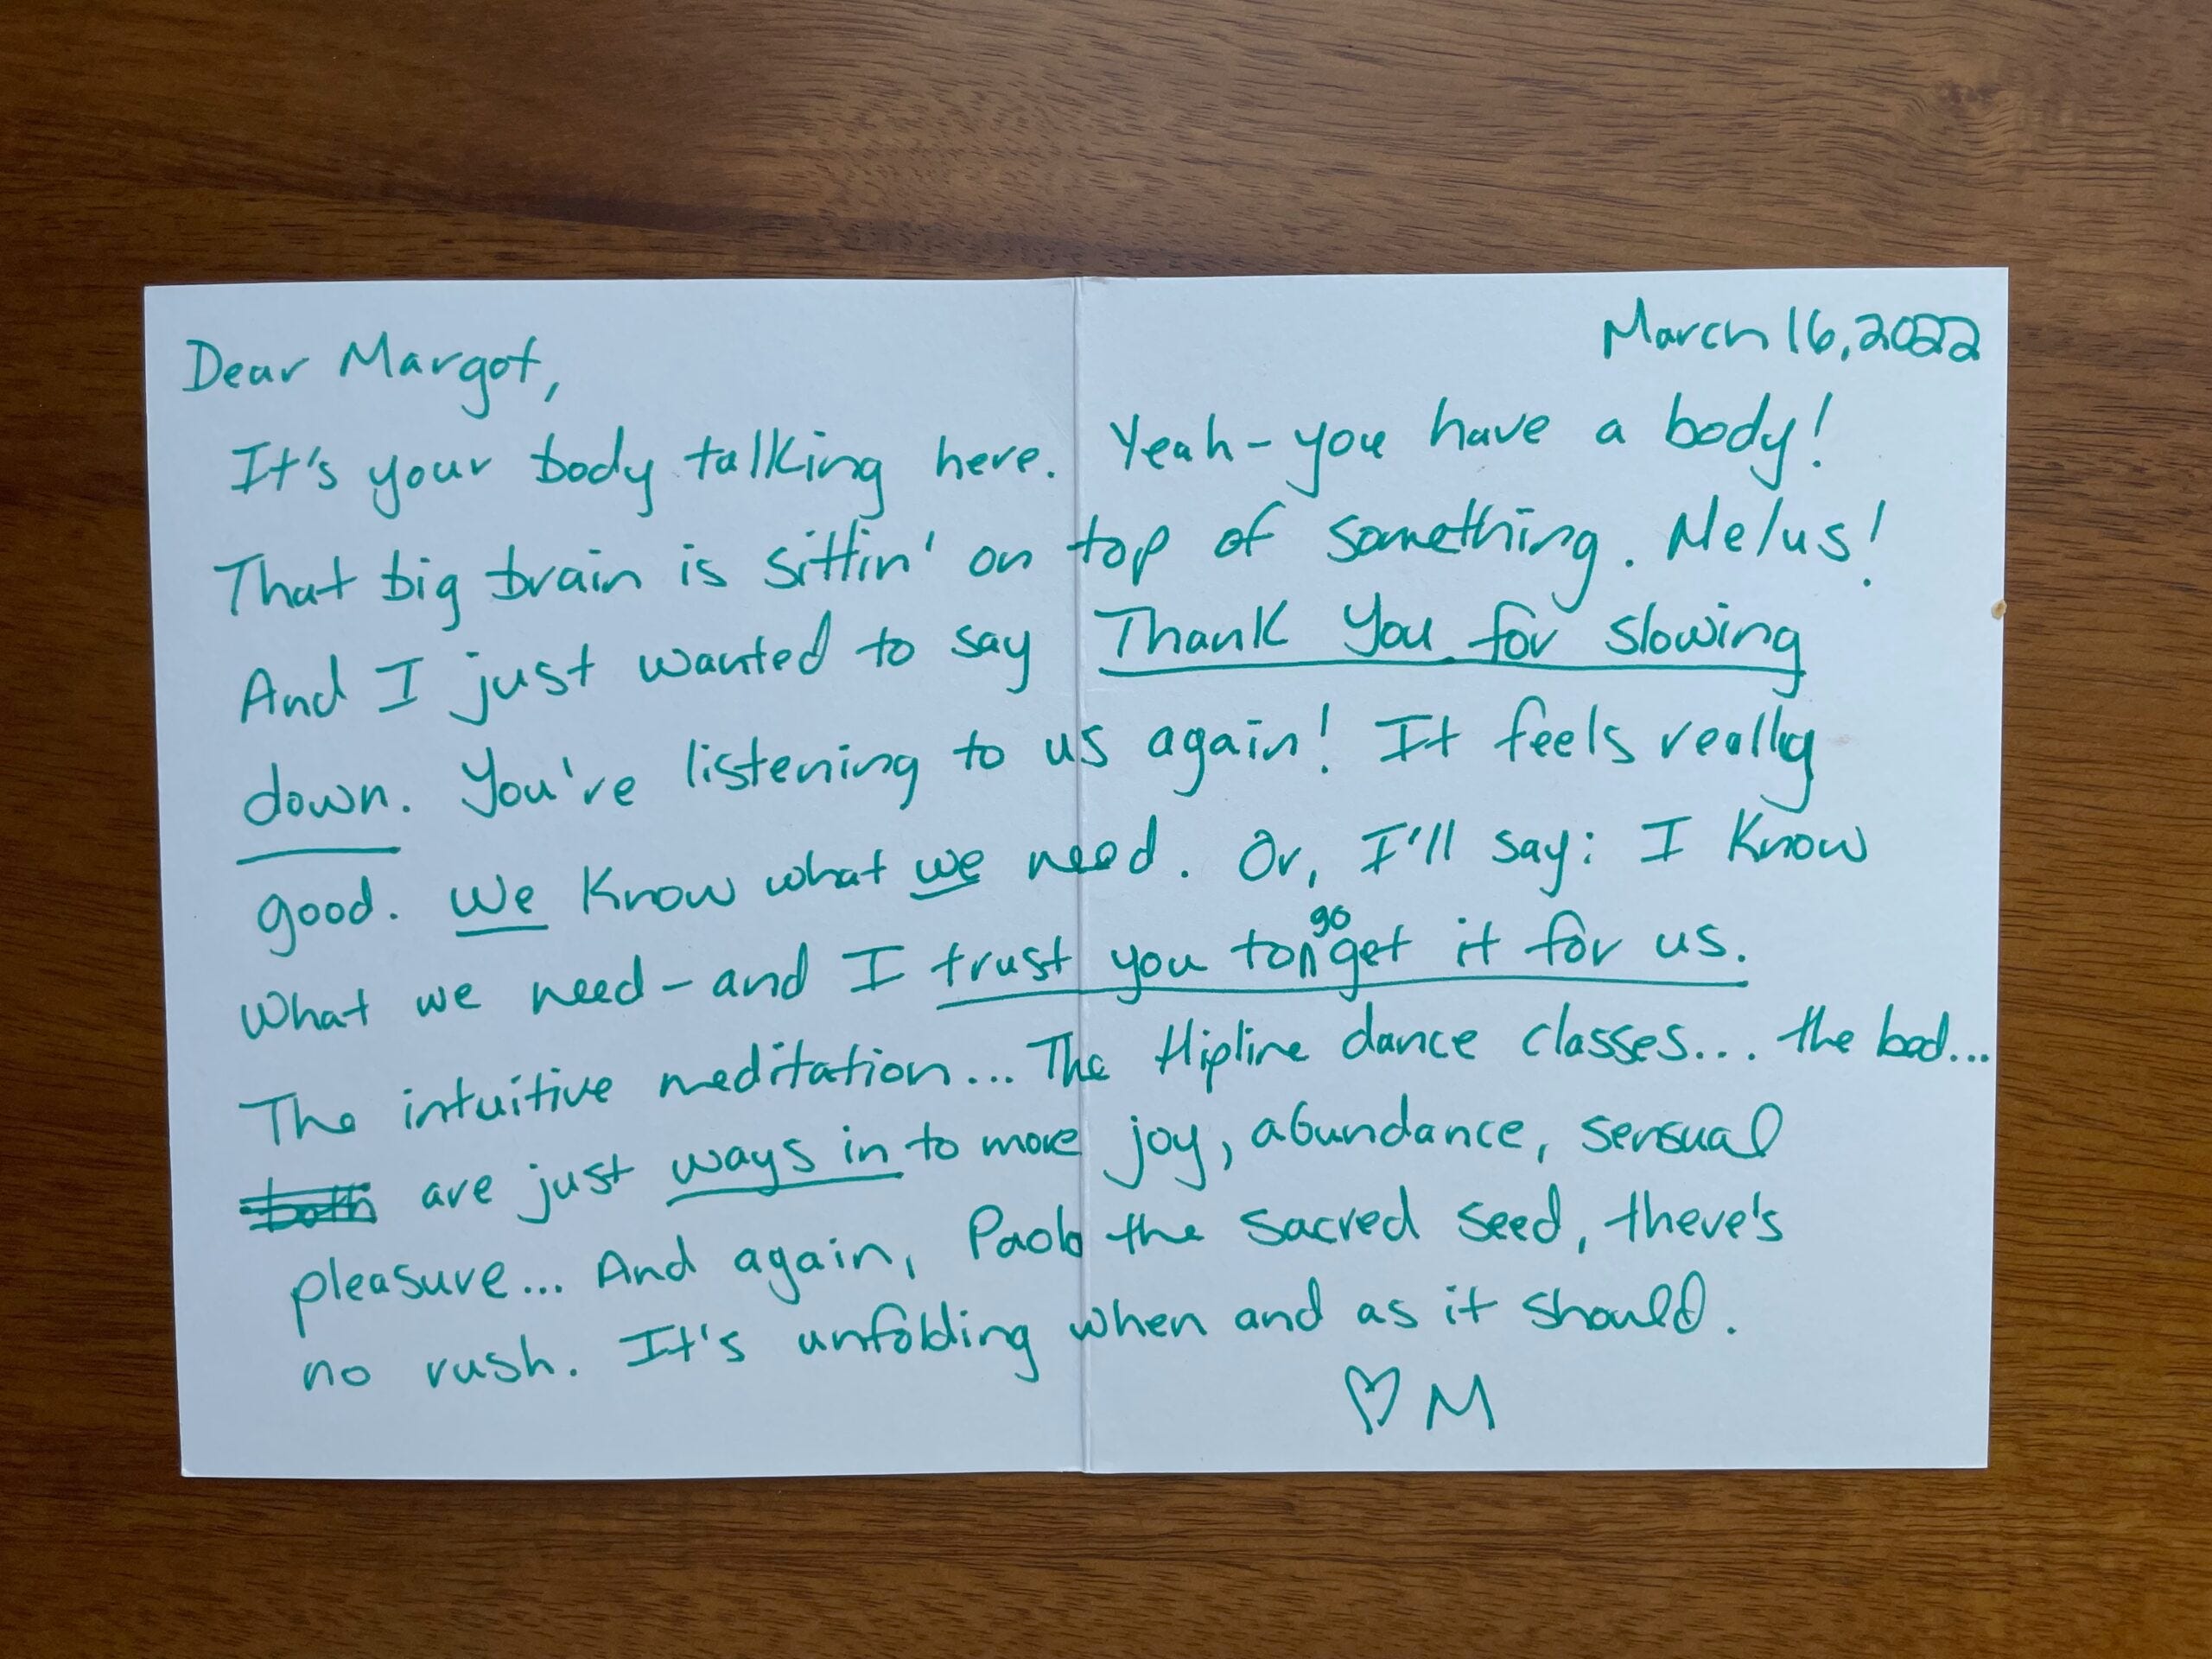 March 16, 2022
Dear Margot,
It's your body talking here. Yeah - you have a body!
That big brain is sittin' on top of something. Me/us!
And I just wanted to say Thank You for slowing
down. You're listening to us again! It feels really
good. We know what we need. Or, I'll say: I know
what we need - and I trust you to go get it for us.
The intuitive meditation... The Hipline dance classes... the bed...
are just ways in to more joy, abundance, sensual
pleasure... And again, Paolo the sacred seed, there's
no rush. It's unfolding when and as it should.
♡ M